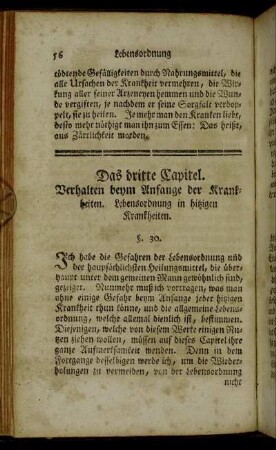 56 Lebensordnung
tödtende Gefälligkeiten durch Nahrungsmittel, die
alle Ursachen der Krankheit vermehren, die Wir-
kung aller seiner Arzeneyen hemmen und die Wun-
de vergiften, je nachdem er seine Sorgfalt verdop-
pelt, sie zu heilen. Je mehr man den Kranken liebt,
desto mehr nöthigt man ihn zum Essen: Das heißt,
aus Zärtlichkeit morden.
Das dritte Capitel.
Verhalten beym Anfange der Krank-
heiten. Lebensordnung in hitzigen
Krankheiten.
§. 30.
Ich habe die Gefahren der Lebensordnung und
der hauptsächlichsten Heilungsmittel, die über-
haupt unter dem gemeinen Mann gewöhnlich sind,
gezeiget. Nunmehr muß ich vortragen, was man
ohne einige Gefahr beym Anfange jeder hitzigen
Krankheit thun könne, und die allgemeine Lebens-
ordnung, welche allemal dienlich ist, bestimmen.
Diejenigen, welche von diesem Werke einigen Nu-
tzen ziehen wollen, müssen auf dieses Capitel ihre
ganze Aufmerksamkeit wenden. Denn in dem
Fortgange desselbigen werde ich, um die Wieder-
holungen zu vermeiden, von der Lebensordnung
nicht